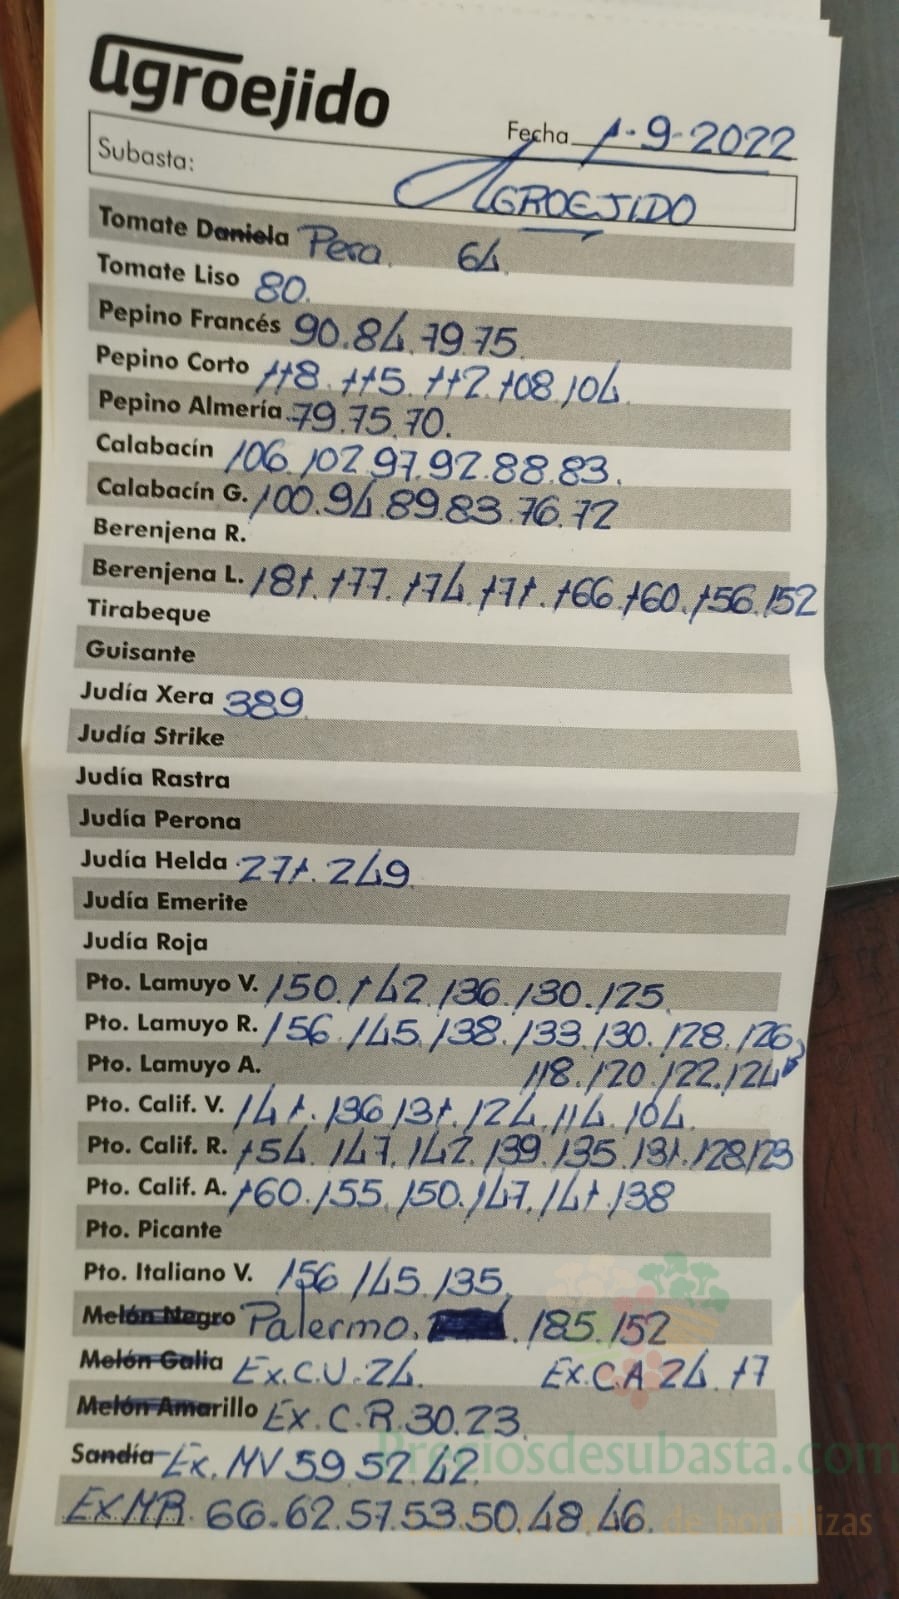 agroejido
Fecha 1-9-2022
Subasta: AGROEJIDO
Tomate Daniela Pera. 64
Tomate Liso 80.
Pepino Francés 90.84.79.75
Pepino Corto 118.115.112.108.104
Pepino Almería 79.75.70.
Calabacín 106.102.97.92.88.83.
Calabacín G. 100.94.89.83.76.72
Berenjena R.
Berenjena L. 181.177.174.171.166.160.156.152
Tirabeque
Guisante
Judía Xera 389
Judía Strike
Judía Rastra
Judía Perona
Judía Helda 271.249
Judía Emerite
Judía Roja
Pto. Lamuyo V. 150.142.136.130.125
Pto. Lamuyo R. 156.145.138.133.130.128.126,
Pto. Lamuyo A. 118.120.122.124
Pto. Calif. V. 141.136.131.124.114.104.
Pto. Calif. R. 154.147.142.139.135.131.128.123
Pto. Calif. A. 160.155.150.147.141.138
Pto. Picante
Pto. Italiano V. 156.145.135.
Melón Negro Palermo. .185.152
Melón Galia Ex.C.V.24. Ex.C.A 24.17
Melón Amarillo Ex.C.R.30.23.
Sandía Ex.MV 59.52.42.
Ex MR. 66.62.57.53.50.48.46.
Preciosdesubasta.com
de hortalizas